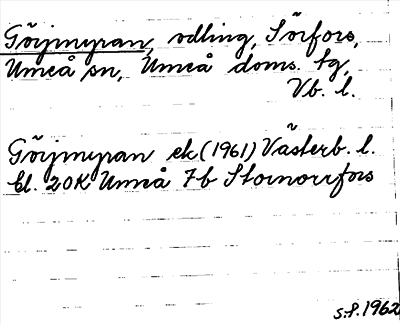 Görjmyran, odling, Sörfors,
Umeå sn, Umeå doms. tg,
Vb. l.
Görjmyran ek. (1961) Västerb. l.
bl. 20K Umeå 7b Stornorrfors
s.f. 1962